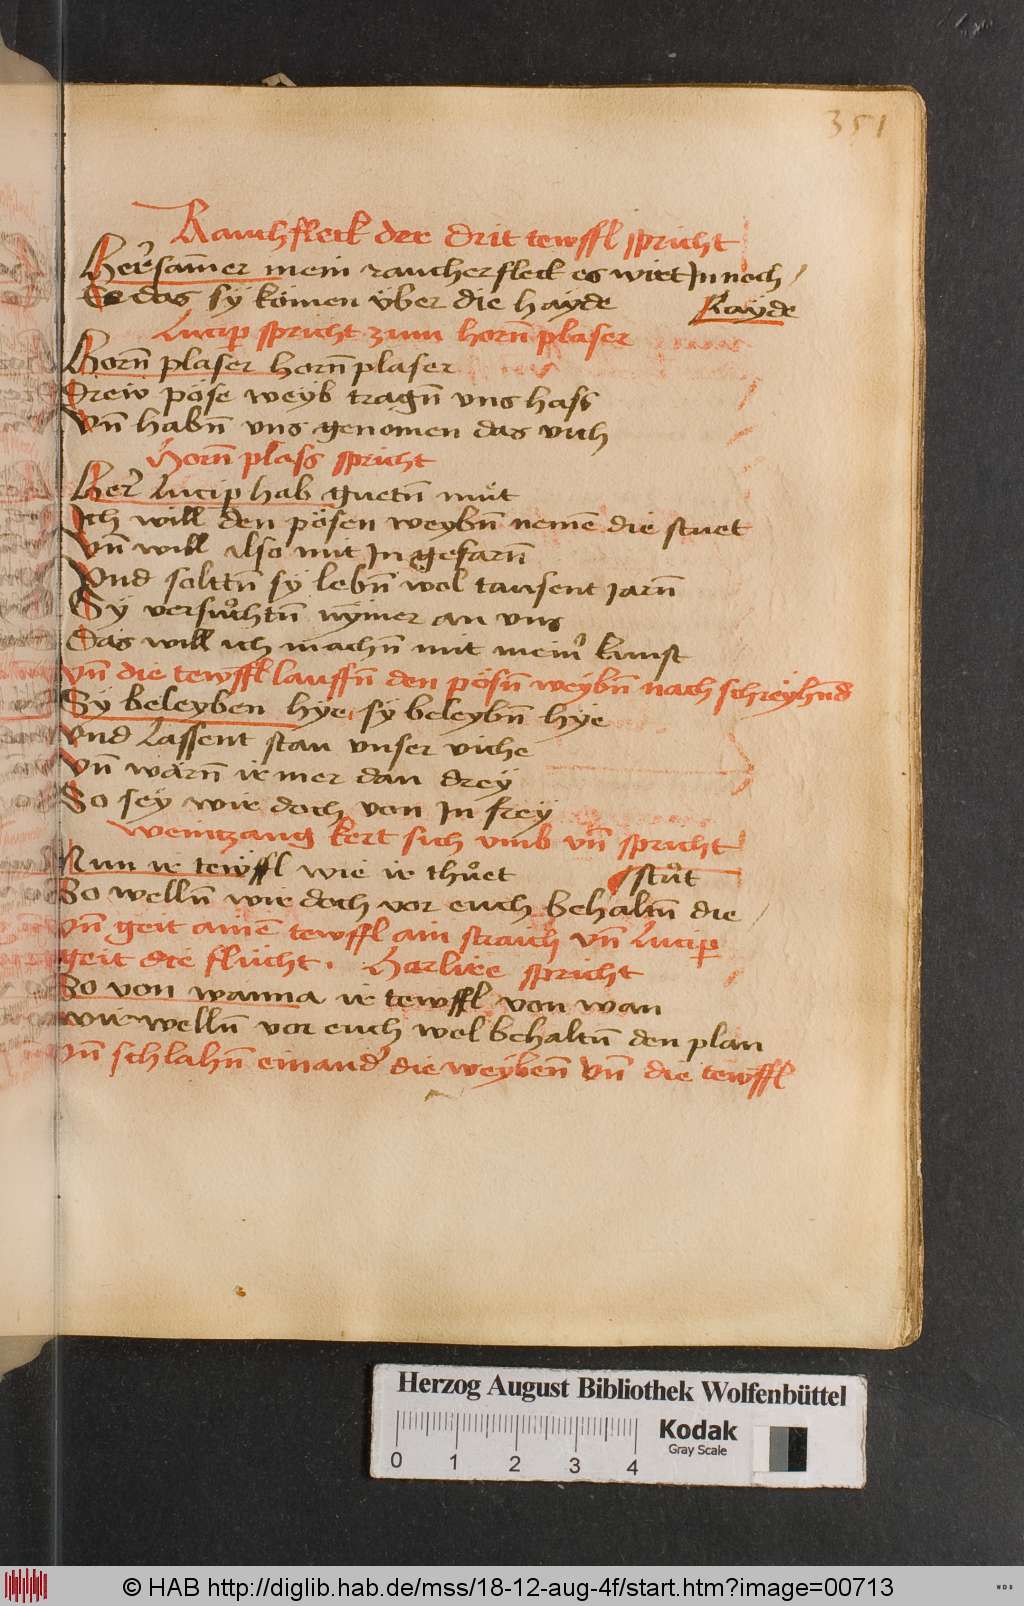 351
Rauchfleck der drit tewffl spricht
Her̄ samer mein raucherfleck es wirt In noch
Ee das sÿ kömen über die hayde Rayde
Lucip spricht zum horn̄ plaser
Horn̄ plaser horn̄ plaser
Drew pöse weyb tragn̄ uns hass
Vn̄ habn̄ uns genomen das vich
Horn̄ plass spricht
Her̄ Lucip hab guetn̄ můt
Ich will den pösen weybn̄ nemē die stuet
Vn̄ will also mit In gefarn̄
Vnd soltn̄ sÿ lebn̄ wol tausent Jarn̄
Sÿ versůchtn̄ nÿmer an uns
Das will ich machn̄ mit meinr̄ kunst
Vn̄ die tewffl lauffn̄ den pösn̄ weybn̄ nach schreyhn̄d
Sÿ beleyben hye sÿ beleybn̄ hÿe
Vnd Lassent stan unser viche
Vn̄ wärn̄ ir mer dan dreÿ
So sey wir doch von In freÿ
weintzang kert sich umb vn̄ spricht
Nun ir tewffl wie ir thůet stůt
So welln̄ wir doch vor euch behaltn̄ die
Vn̄ geit ainē tewffl ain straich vn̄ Lucip
geit die flücht. Harlire spricht
So von wanna ir tewffl von wan
wir welln̄ vor euch wol behaltn̄ den plan
Vn̄ schlahn̄ einander̄ die weyben̄ vn̄ die tewffl
Herzog August Bibliothek Wolfenbüttel
Kodak
Gray Scale
0 1 2 3 4
© HAB http://diglib.hab.de/mss/18-12-aug-4f/start.htm?image=00713